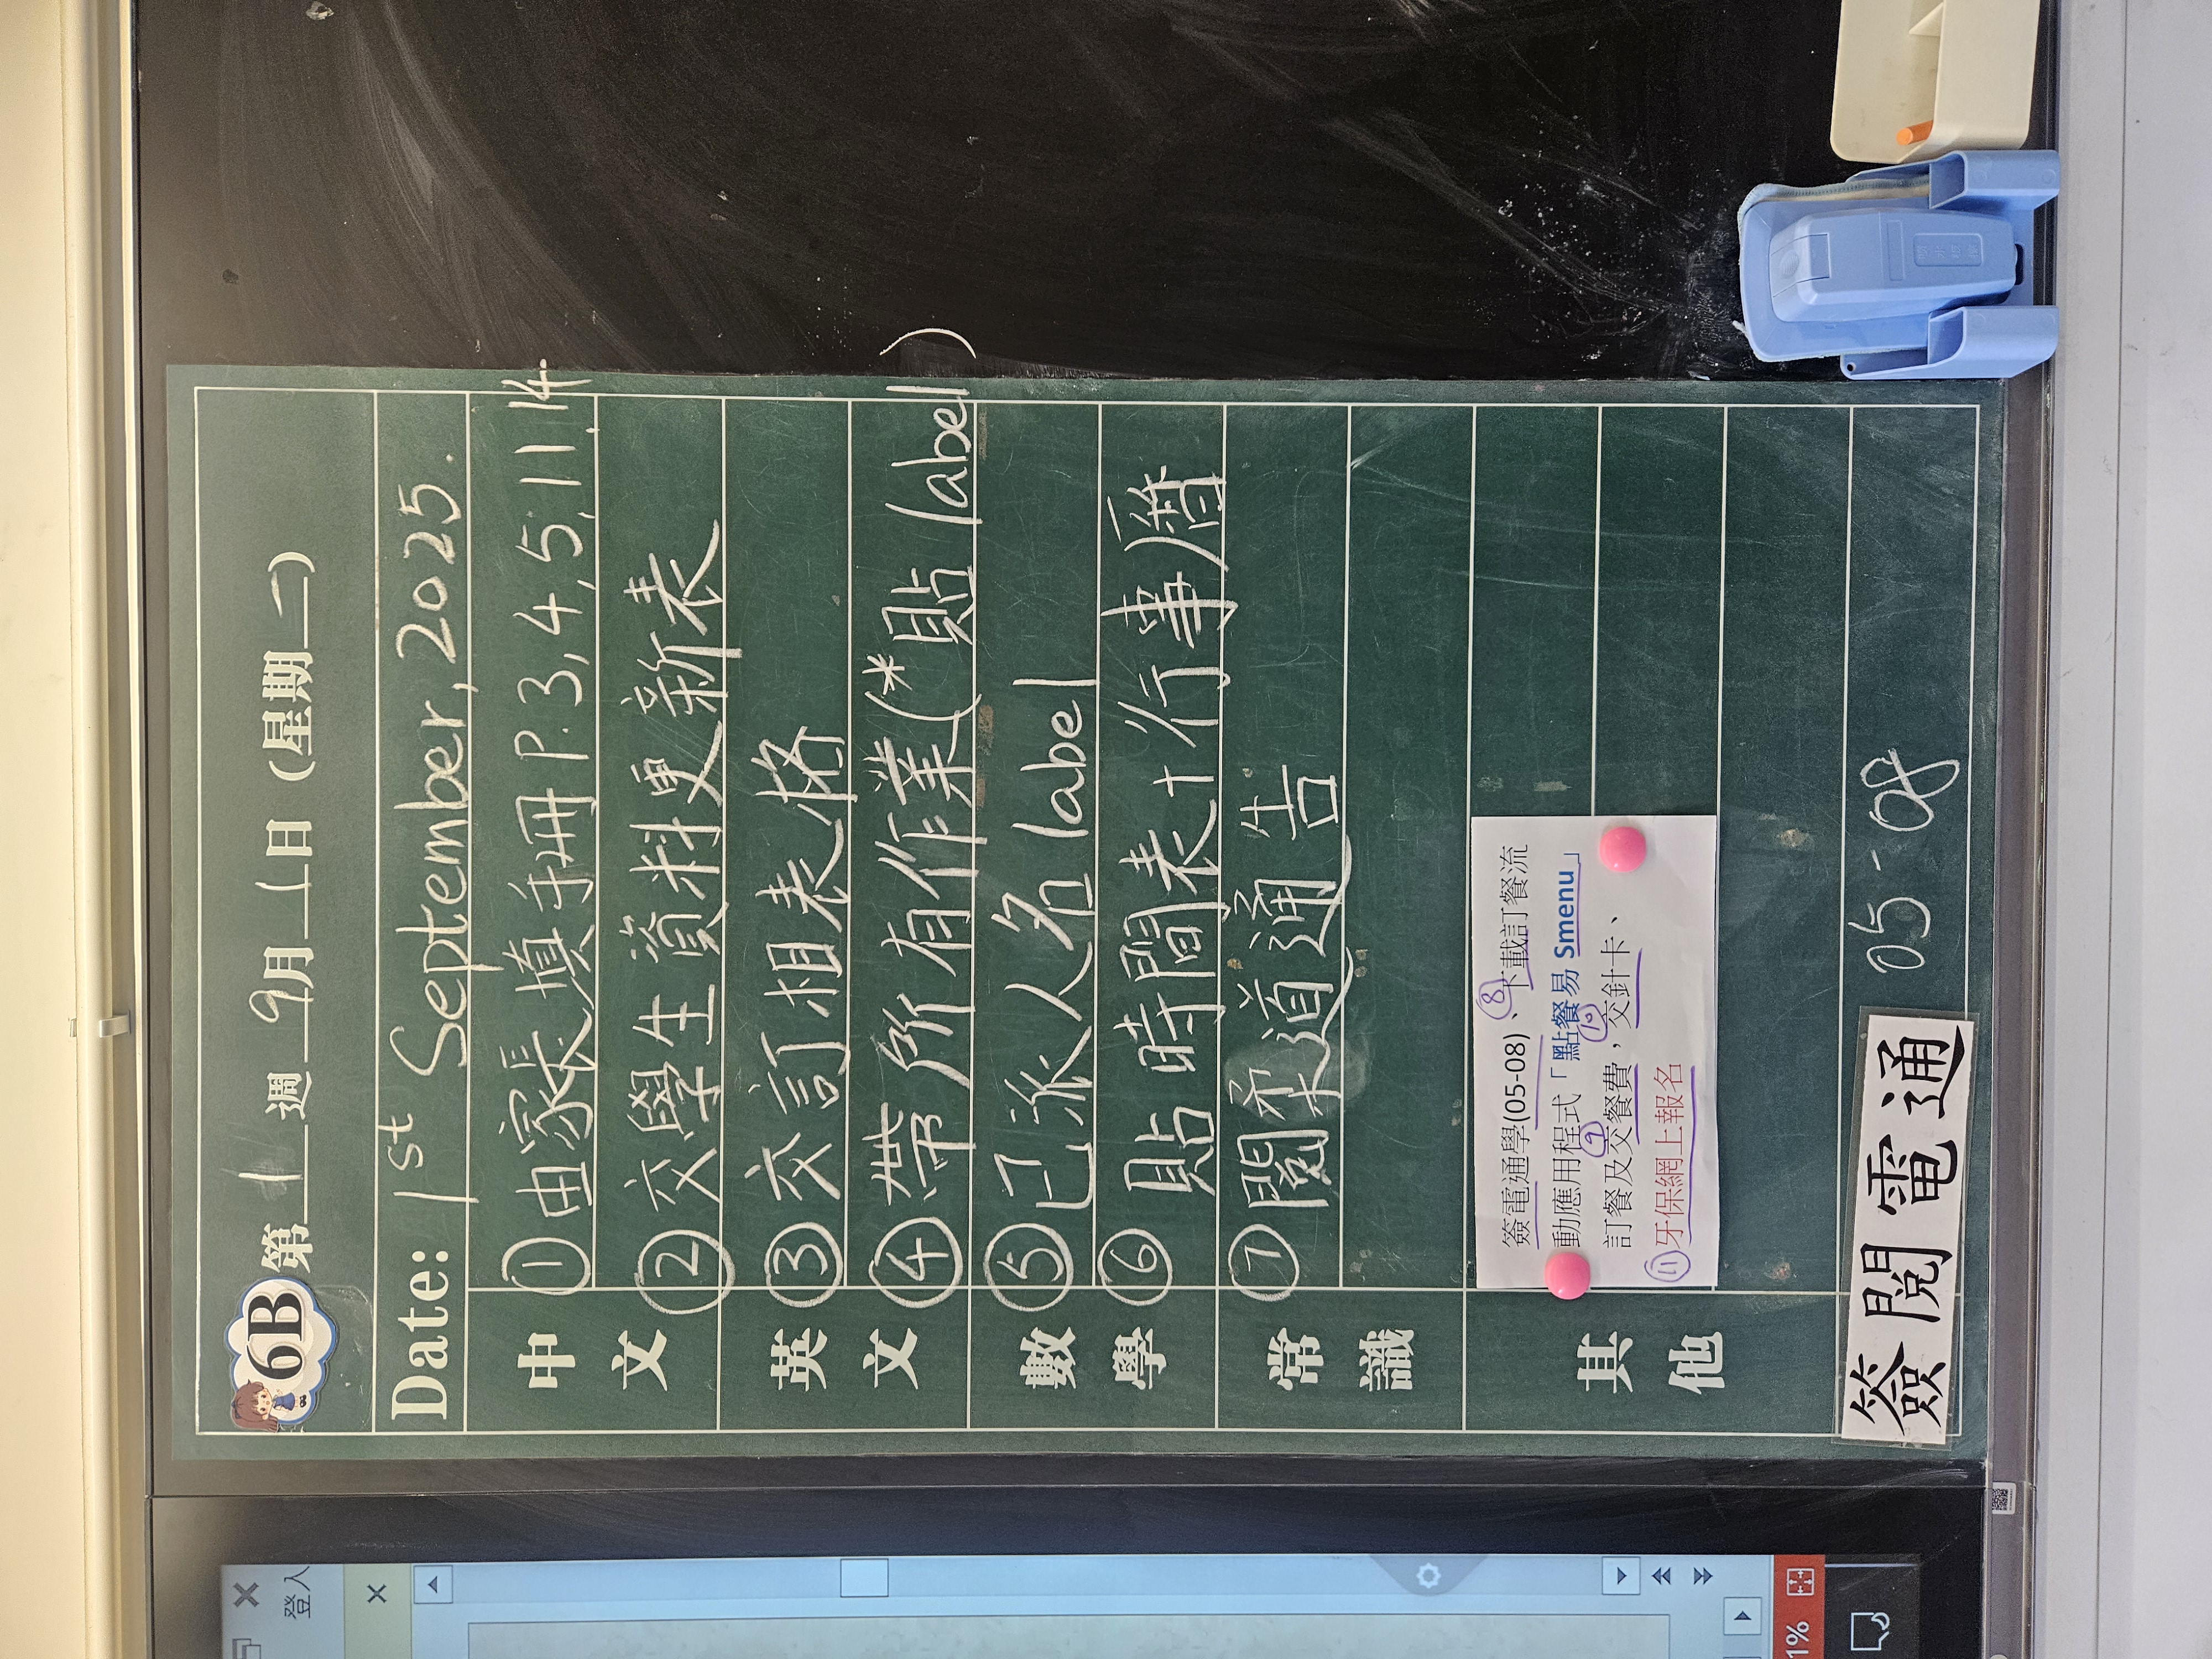 6B 第 1 週 9 月 1 日 (星期 二)
Date: 1st September, 2025.
中文
① 由家長填手冊 P.3, 4, 5, 11, 14
② 交學生資料更新表
英文
③ 交訂相表格
④ 帶所有作業(*貼 label)
數學
⑤ 已派人名 label
⑥ 貼時間表+行事曆
常識
⑦ 閱柔道通告
其他
簽電通學(05-08)、⑧下載訂餐流
動應用程式「點餐易 Smenu」
⑨ ⑩
訂餐及交餐費，交針卡、
⑪牙保網上報名
簽閱電通 05-08
登入
1%